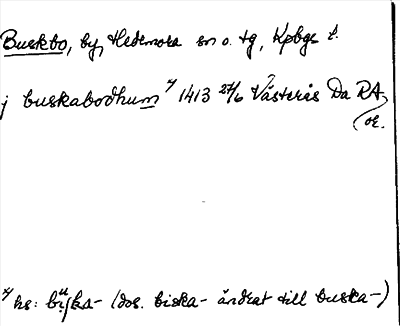 Buskbo, by, Hedemora sn o. tg, Kpbgs l.
j buskabodhum x) 1413 27/6 Västerås Da RA
or.
x) hs: bijska- (dvs. biska- ändrat till buska-)